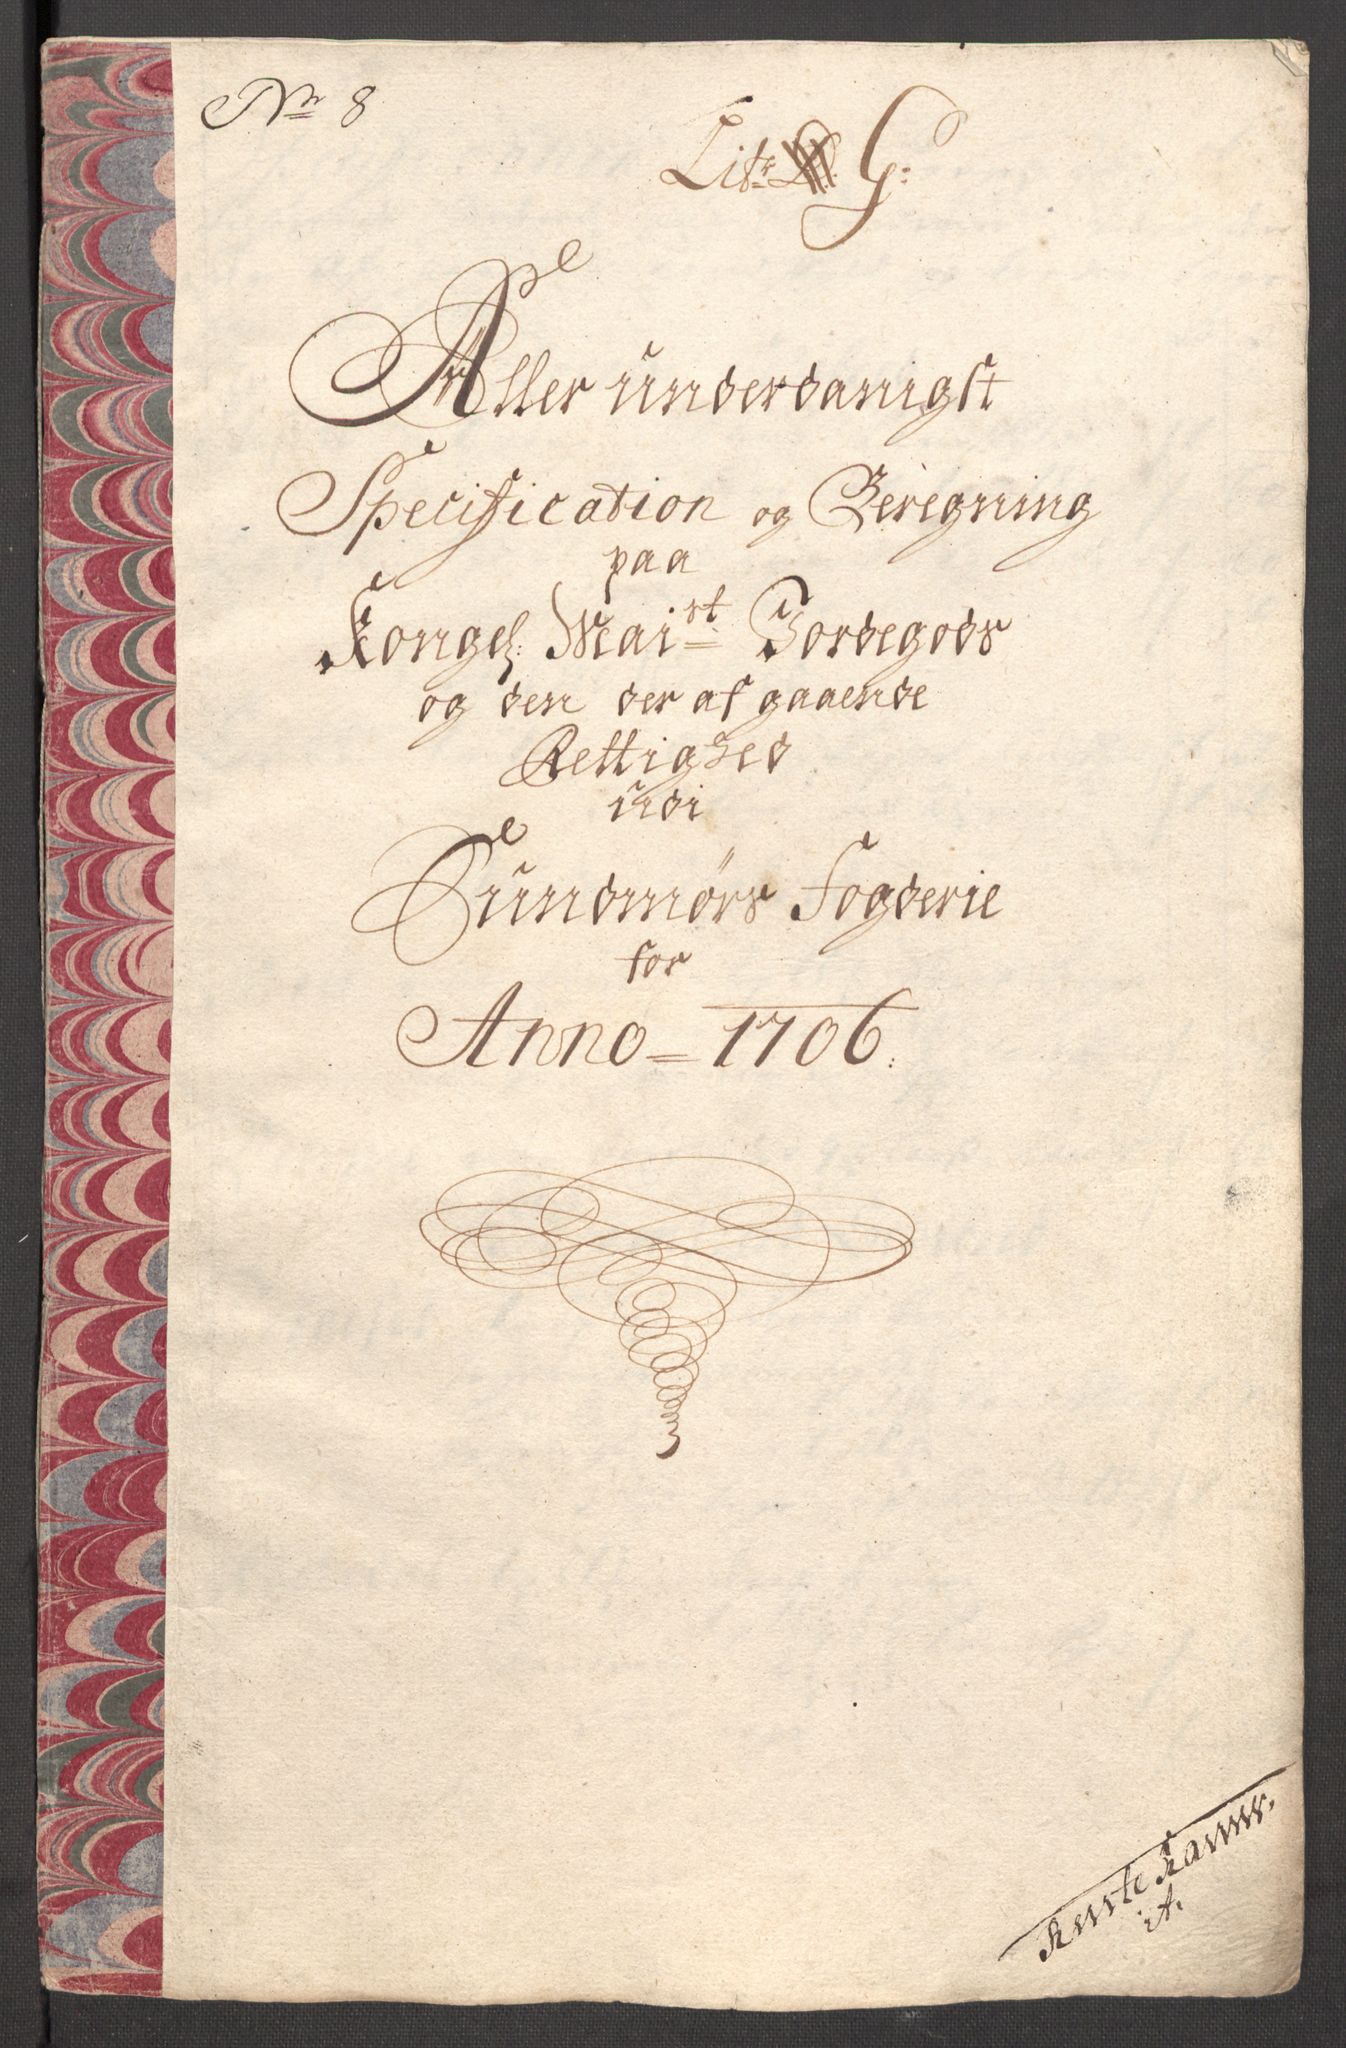 No 8
Litr G:
Aller underdanigst
Specification og Beregning
paa
Kongel: Maist Jordegods
og den der af gaaende
Rettighed
udi
Sundmørs Fogderie
for
Anno = 1706.
Rente Kammer,